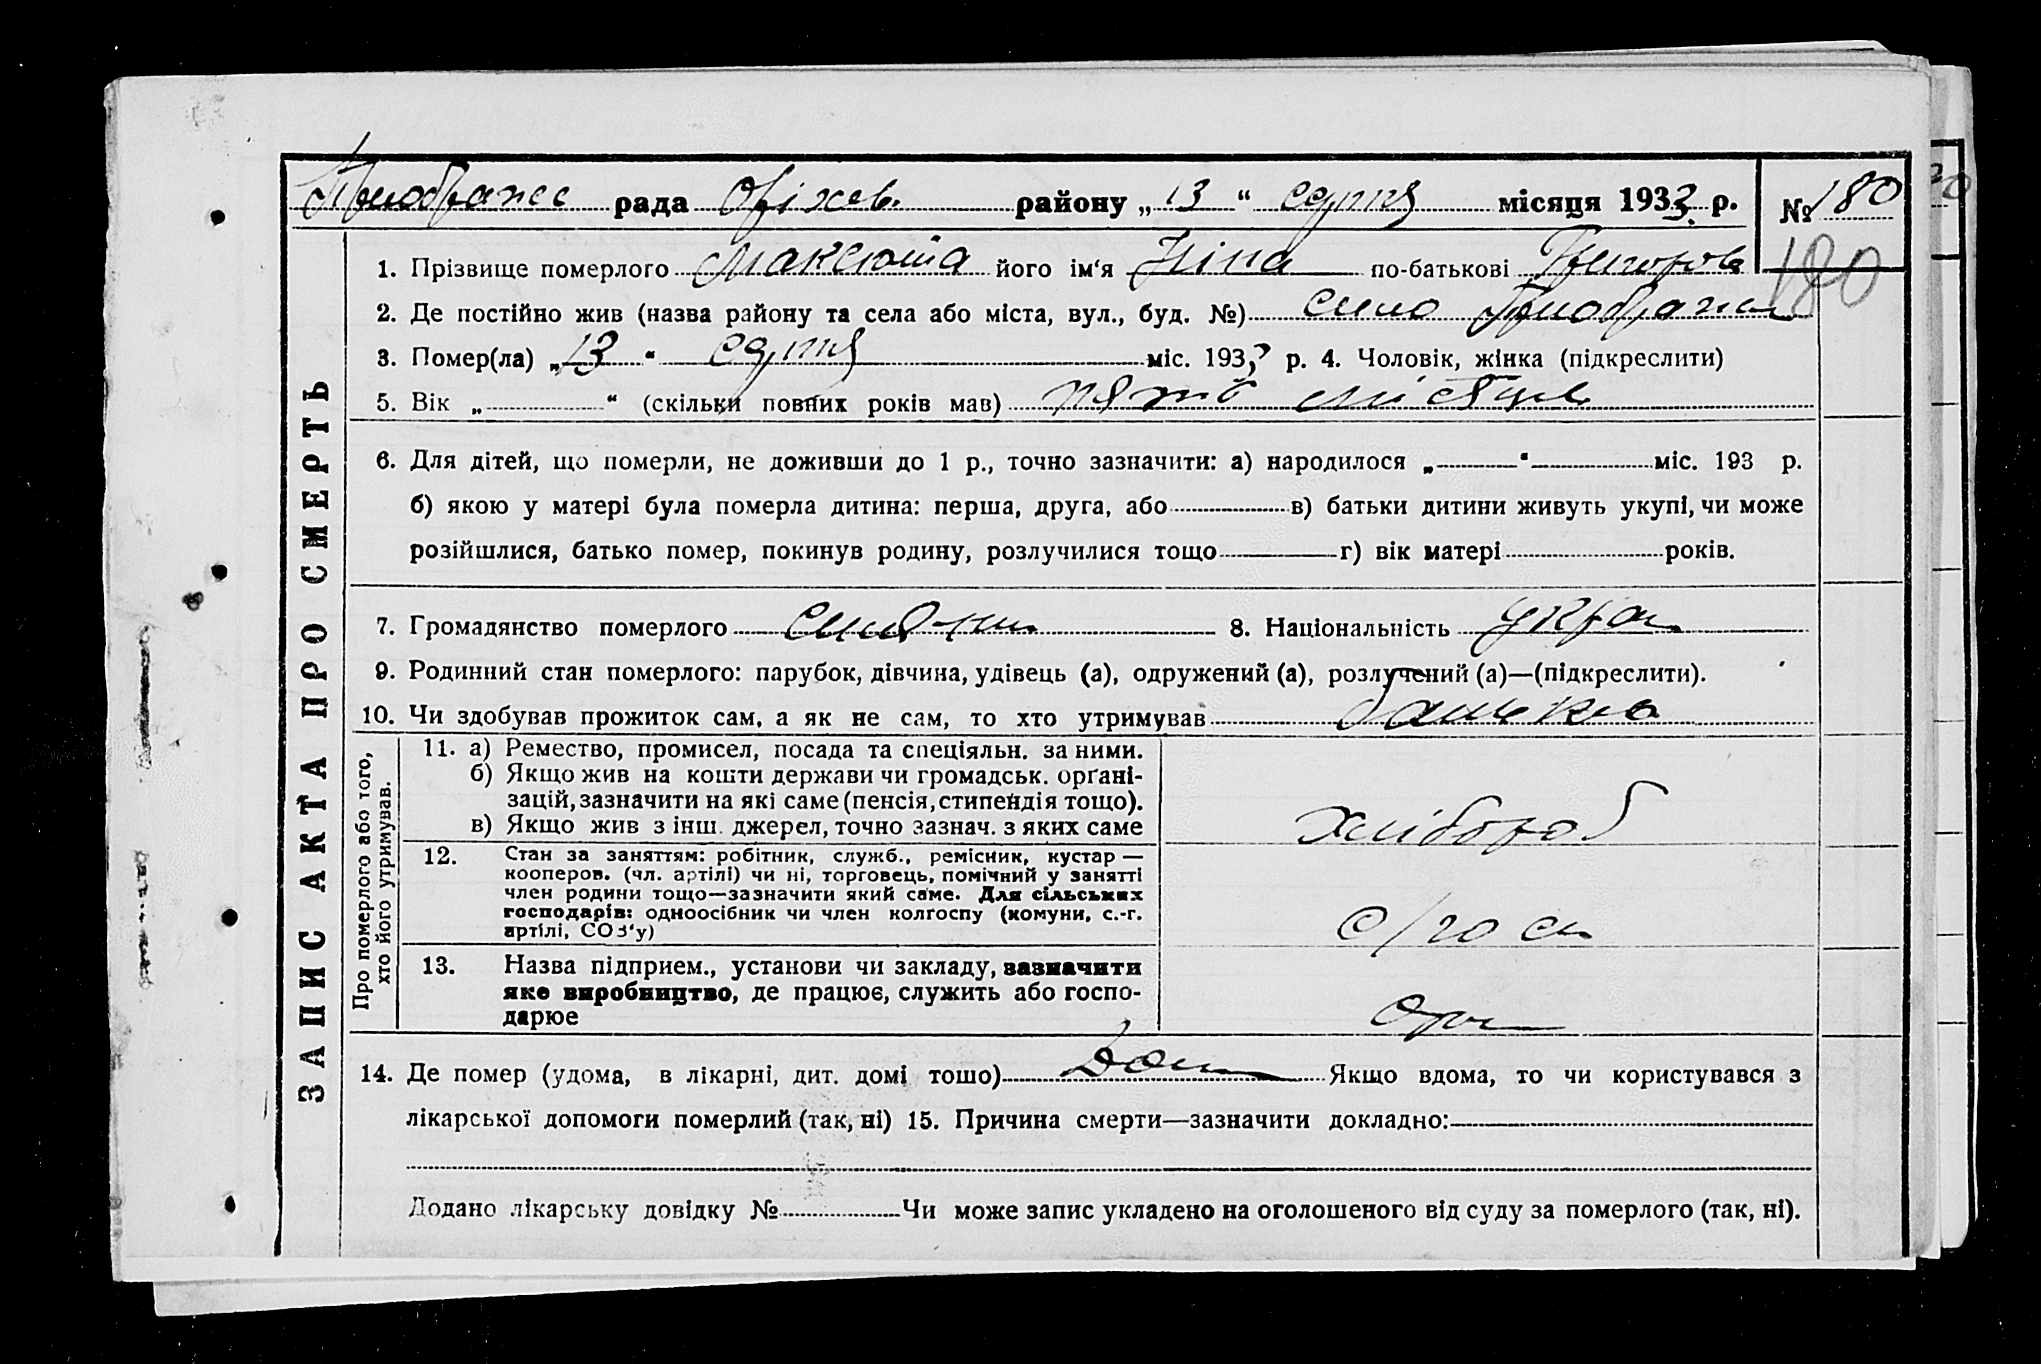 Преображе рада Оріхів. району „ 13 “ серпня місяця 1933 р. № 180
180
1. Прізвище померлого Максюта його ім'я Ніна по-батькові Григоров
2. Де постійно жив (назва району та села або міста, вул., буд. №) село Преображен
3. Помер(ла) „ 13 “ серпня міс. 1933 р. 4. Чоловік, жінка (підкреслити)
5. Вік „ “ (скільки повних років мав) пять місяців
6. Для дітей, що померли, не доживши до 1 р., точно зазначити: а) народилося „ “ міс. 193 р.
б) якою у матері була померла дитина: перша, друга, або в) батьки дитини живуть укупі, чи може
розійшлися, батько помер, покинув родину, розлучилися тощо г) вік матері років.
7. Громадянство померлого 8. Національність укра
9. Родинний стан померлого: парубок, дівчина, удівець (а), одружений (а), розлучений (а)—(підкреслити).
10. Чи здобував прожиток сам, а як не сам, то хто утримував батько
ЗАПИС АКТА ПРО СМЕРТЬ
Про померлого або того,
хто його утримував.
11. а) Ремество, промисел, посада та спеціяльн. за ними.
б) Якщо жив на кошти держави чи громадськ. орґані-
зацій, зазначити на які саме (пенсія, стипендія тощо).
в) Якщо жив з інш. джерел, точно зазнач. з яких саме
хлібороб
12. Стан за заняттям: робітник, служб., ремісник, кустар —
кооперов. (чл. артілі) чи ні, торговець, помічний у занятті
член родини тощо—зазначити який саме. Для сільських
господарів: одноосібник чи член колгоспу (комуни, с.-г.
артілі, СОЗ'у)
13. Назва підприєм., установи чи закладу, зазначити
яке виробництво, де працює, служить або госпо-
дарює
14. Де помер (удома, в лікарні, дит. домі тошо) Дом Якщо вдома, то чи користувався з
лікарської допомоги померлий (так, ні) 15. Причина смерти—зазначити докладно:
Додано лікарську довідку № Чи може запис укладено на оголошеного від суду за померлого (так, ні).